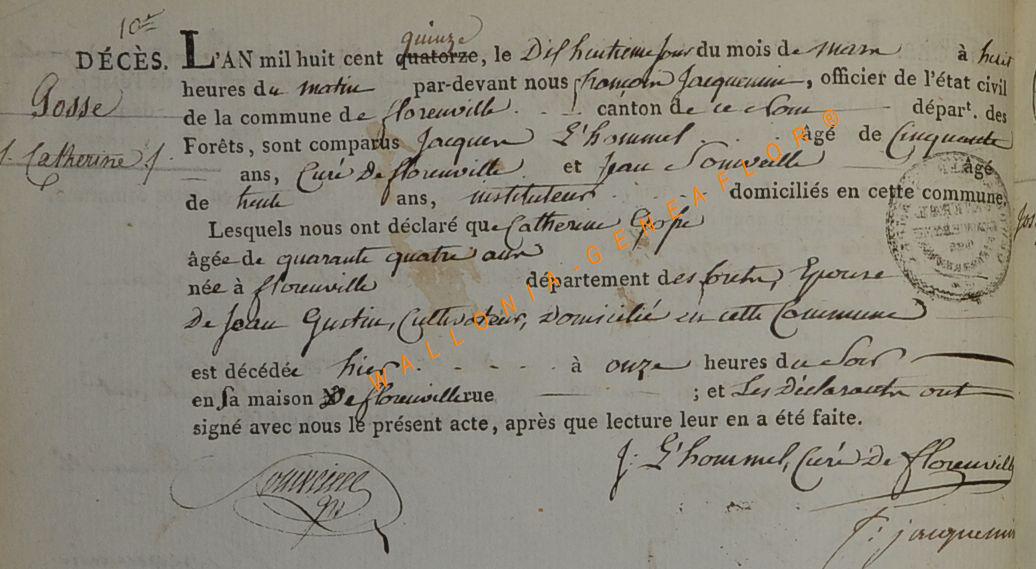 10e
DÉCÈS. L'AN mil huit cent quatorze, quinze le Dix huitieme jour du mois de mars à huit
Gosse
Catherine
heures du matin par-devant nous françois Jacquemin, officier de l'état civil
de la commune de florenville. canton de ce nom départ. des
Forêts, sont comparus Jacques L'hommel âgé de Cinquante
ans, Curé De florenville et Jean Souveille âgé
de trente ans, instituteur domiciliés en cette commune
Lesquels nous ont déclaré que Catherine Gosse
âgée de quarante quatre ans
née à florenville département des forêts, Epouse
De Jean Gustin, Cultivateur, Domicilié en cette Commune
est décédée hier à onze heures du Soir
en sa maison De florenville rue ; et Les Déclarants ont
signé avec nous le présent acte, après que lecture leur en a été faite.
J: L'hommel, Curé De florenville
f: jacquemin
WALLONIA-GENEAFLOR®